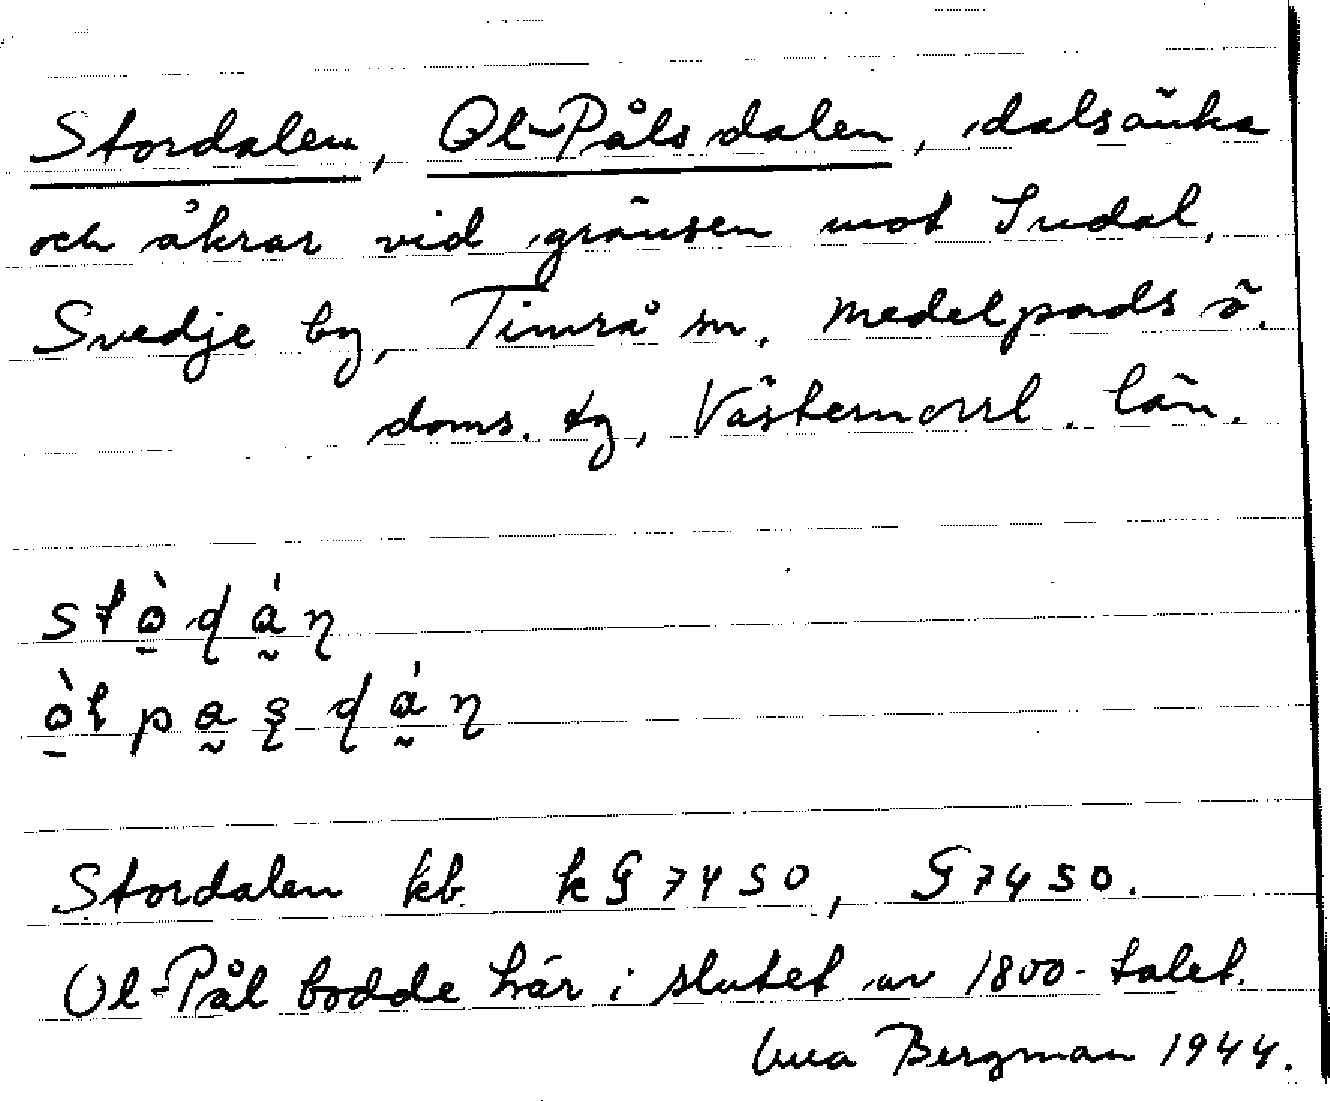 Stordalen, Ol-Pålsdalen, dalsänka
och åkrar vid gränsen mot Indal,
Svedje by, Timrå sn, Medelpads ö.
doms. tg, Västernorrl. län.
Stordalen kb. kG 7450, G 7450.
Ol-Pål bodde här i slutet av 1800-talet.
Bergman 1944.